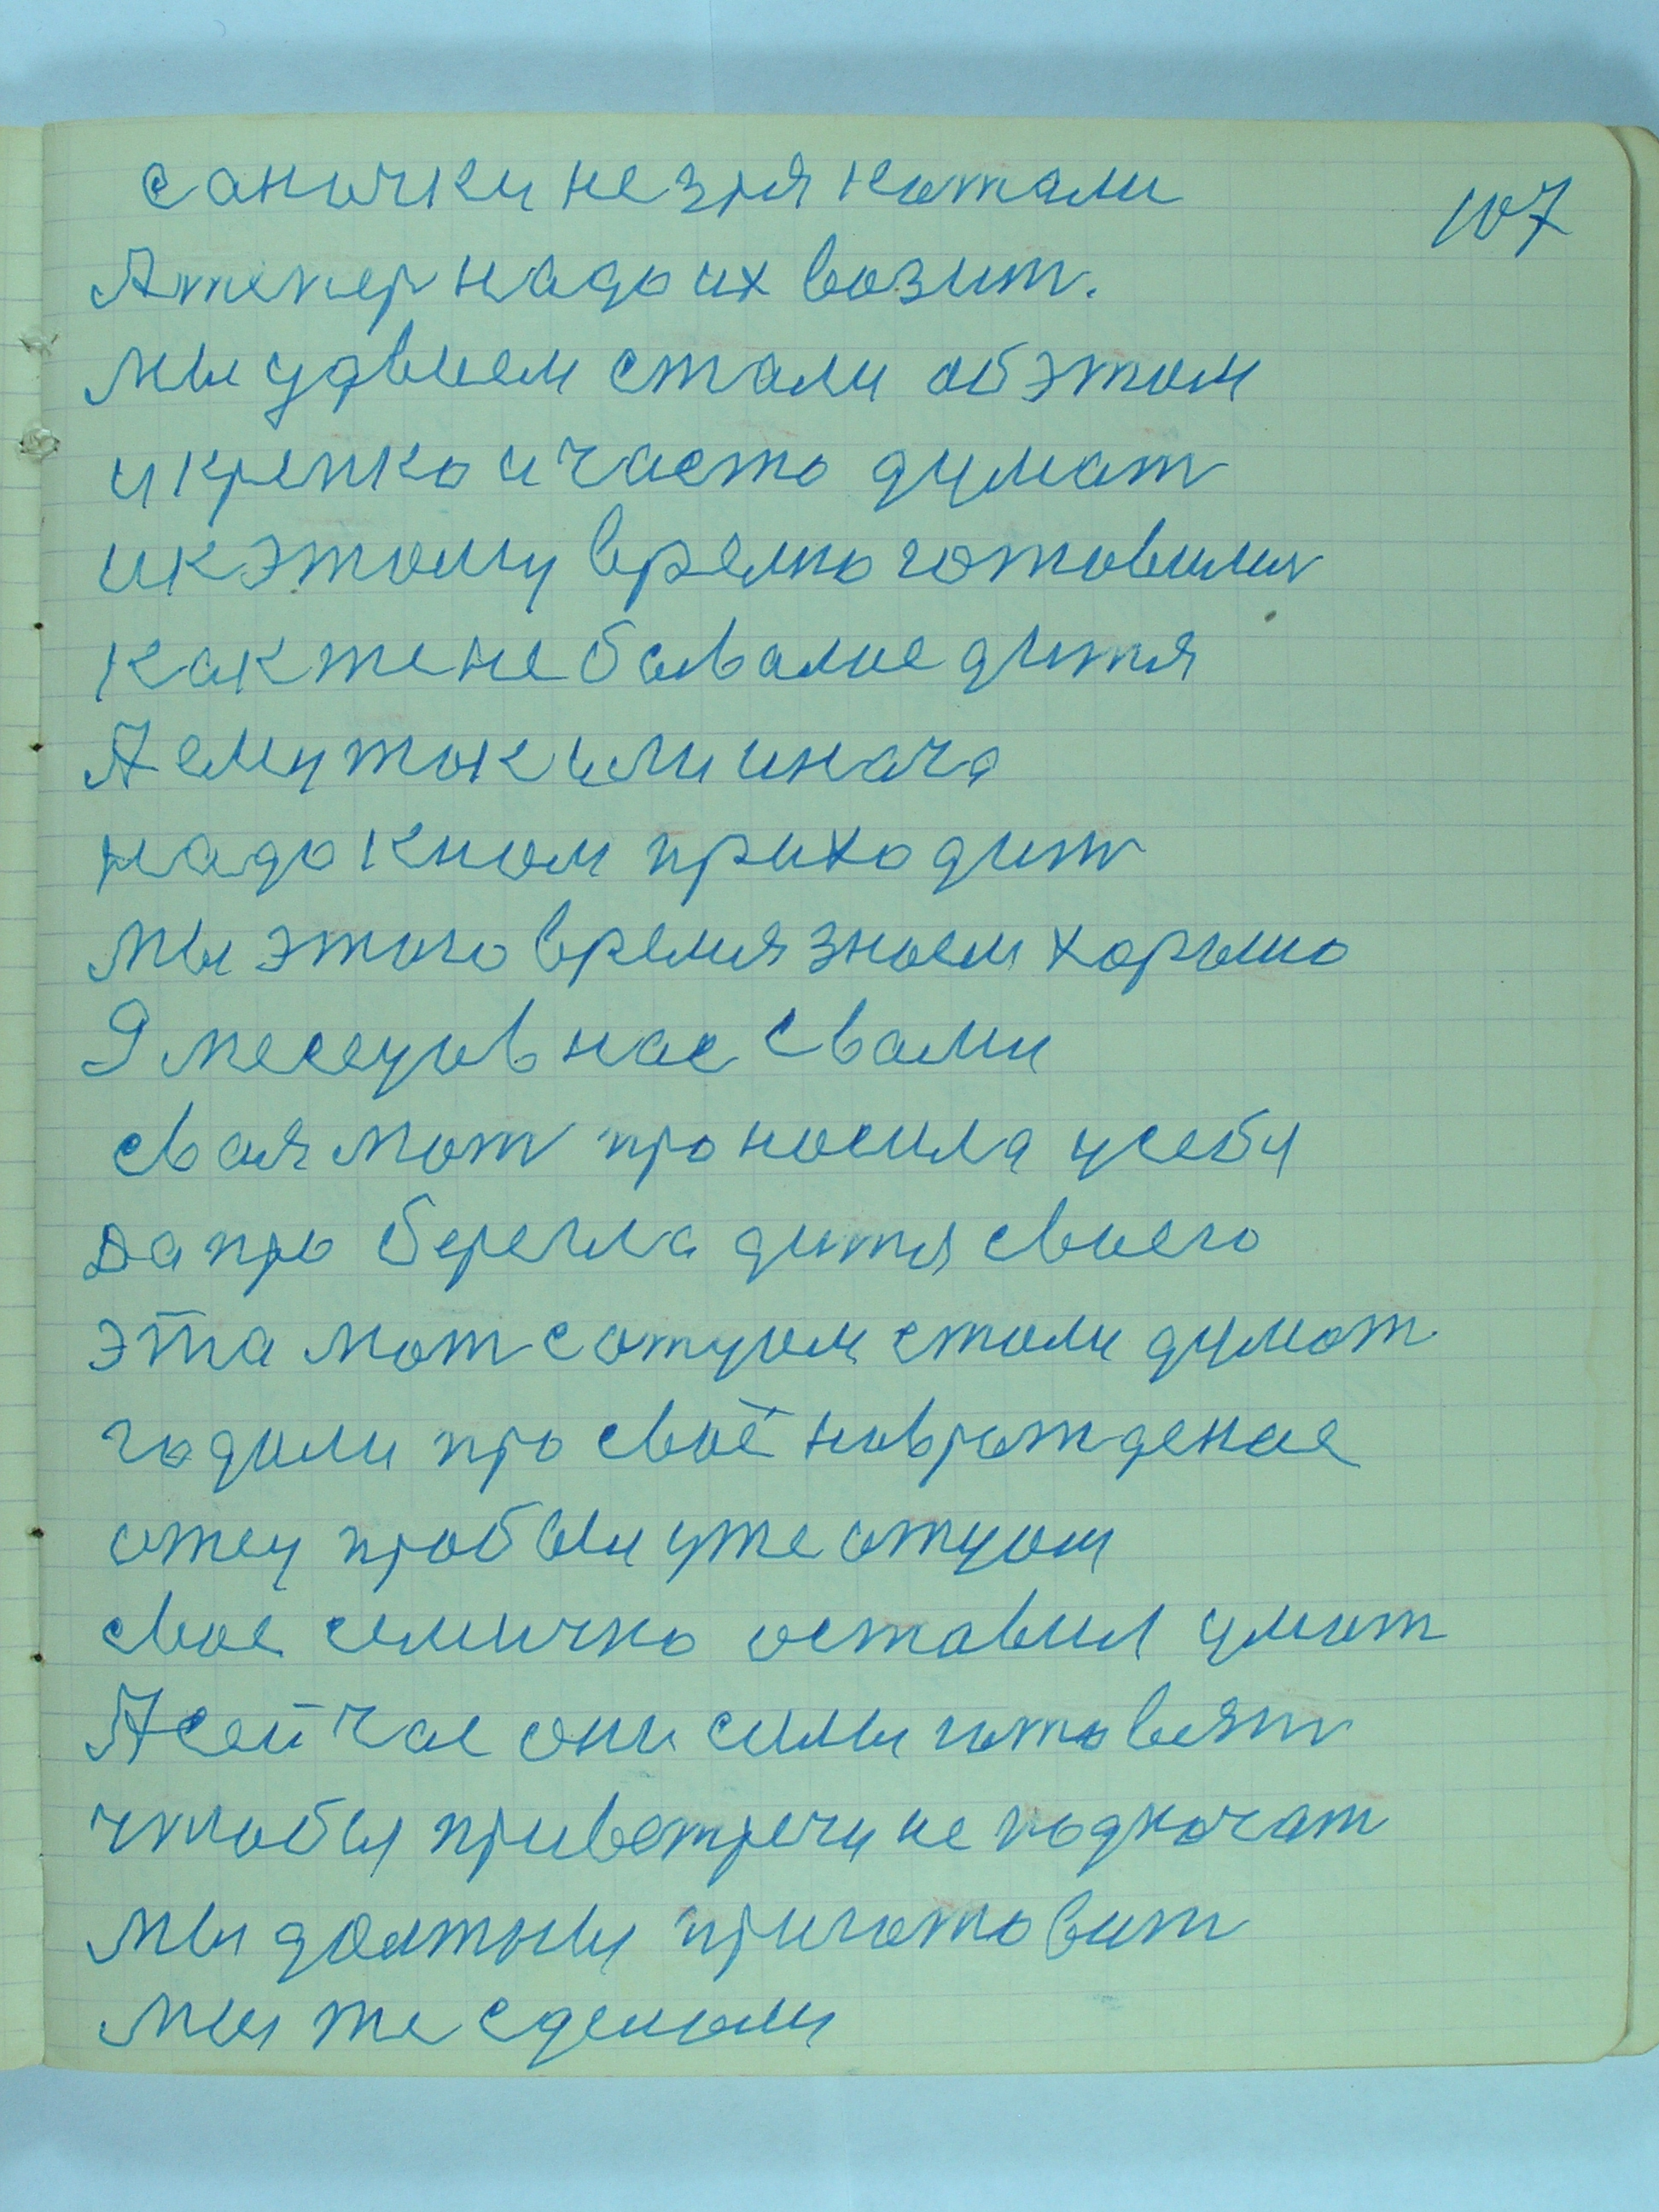 саночки не зря катали
107
А тепер надо их возит.
мы удвыем стали об этом
и крепко и часто думат
и к этому времю готовилис
как же не бывалое дитя
А ему так или инача
надо к ном приходит
мы этого время знаем хорошо
9 месецов нас с вами
свая мат проносила у себя
да про берегла дитя своего
эта мат с отцом стали думат
гадали про своё наврождение
отец пробыл уже отцом
свое семичко оставил умат
А сейчас они силы готовят
чтобы привстречи не подкачат
мы должны приготовит
мы же сделали